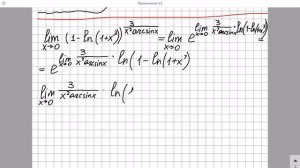 lim x→0 (1-ln(1+x³))^(3/(x²arcsinx)) = lim x→0 e^(3/(x²arcsinx) · ln(1-ln(1+x³))) =
= e^(lim x→0 3/(x²arcsinx) · ln(1-ln(1+x³)))
lim x→0 3/(x²arcsinx) · ln(